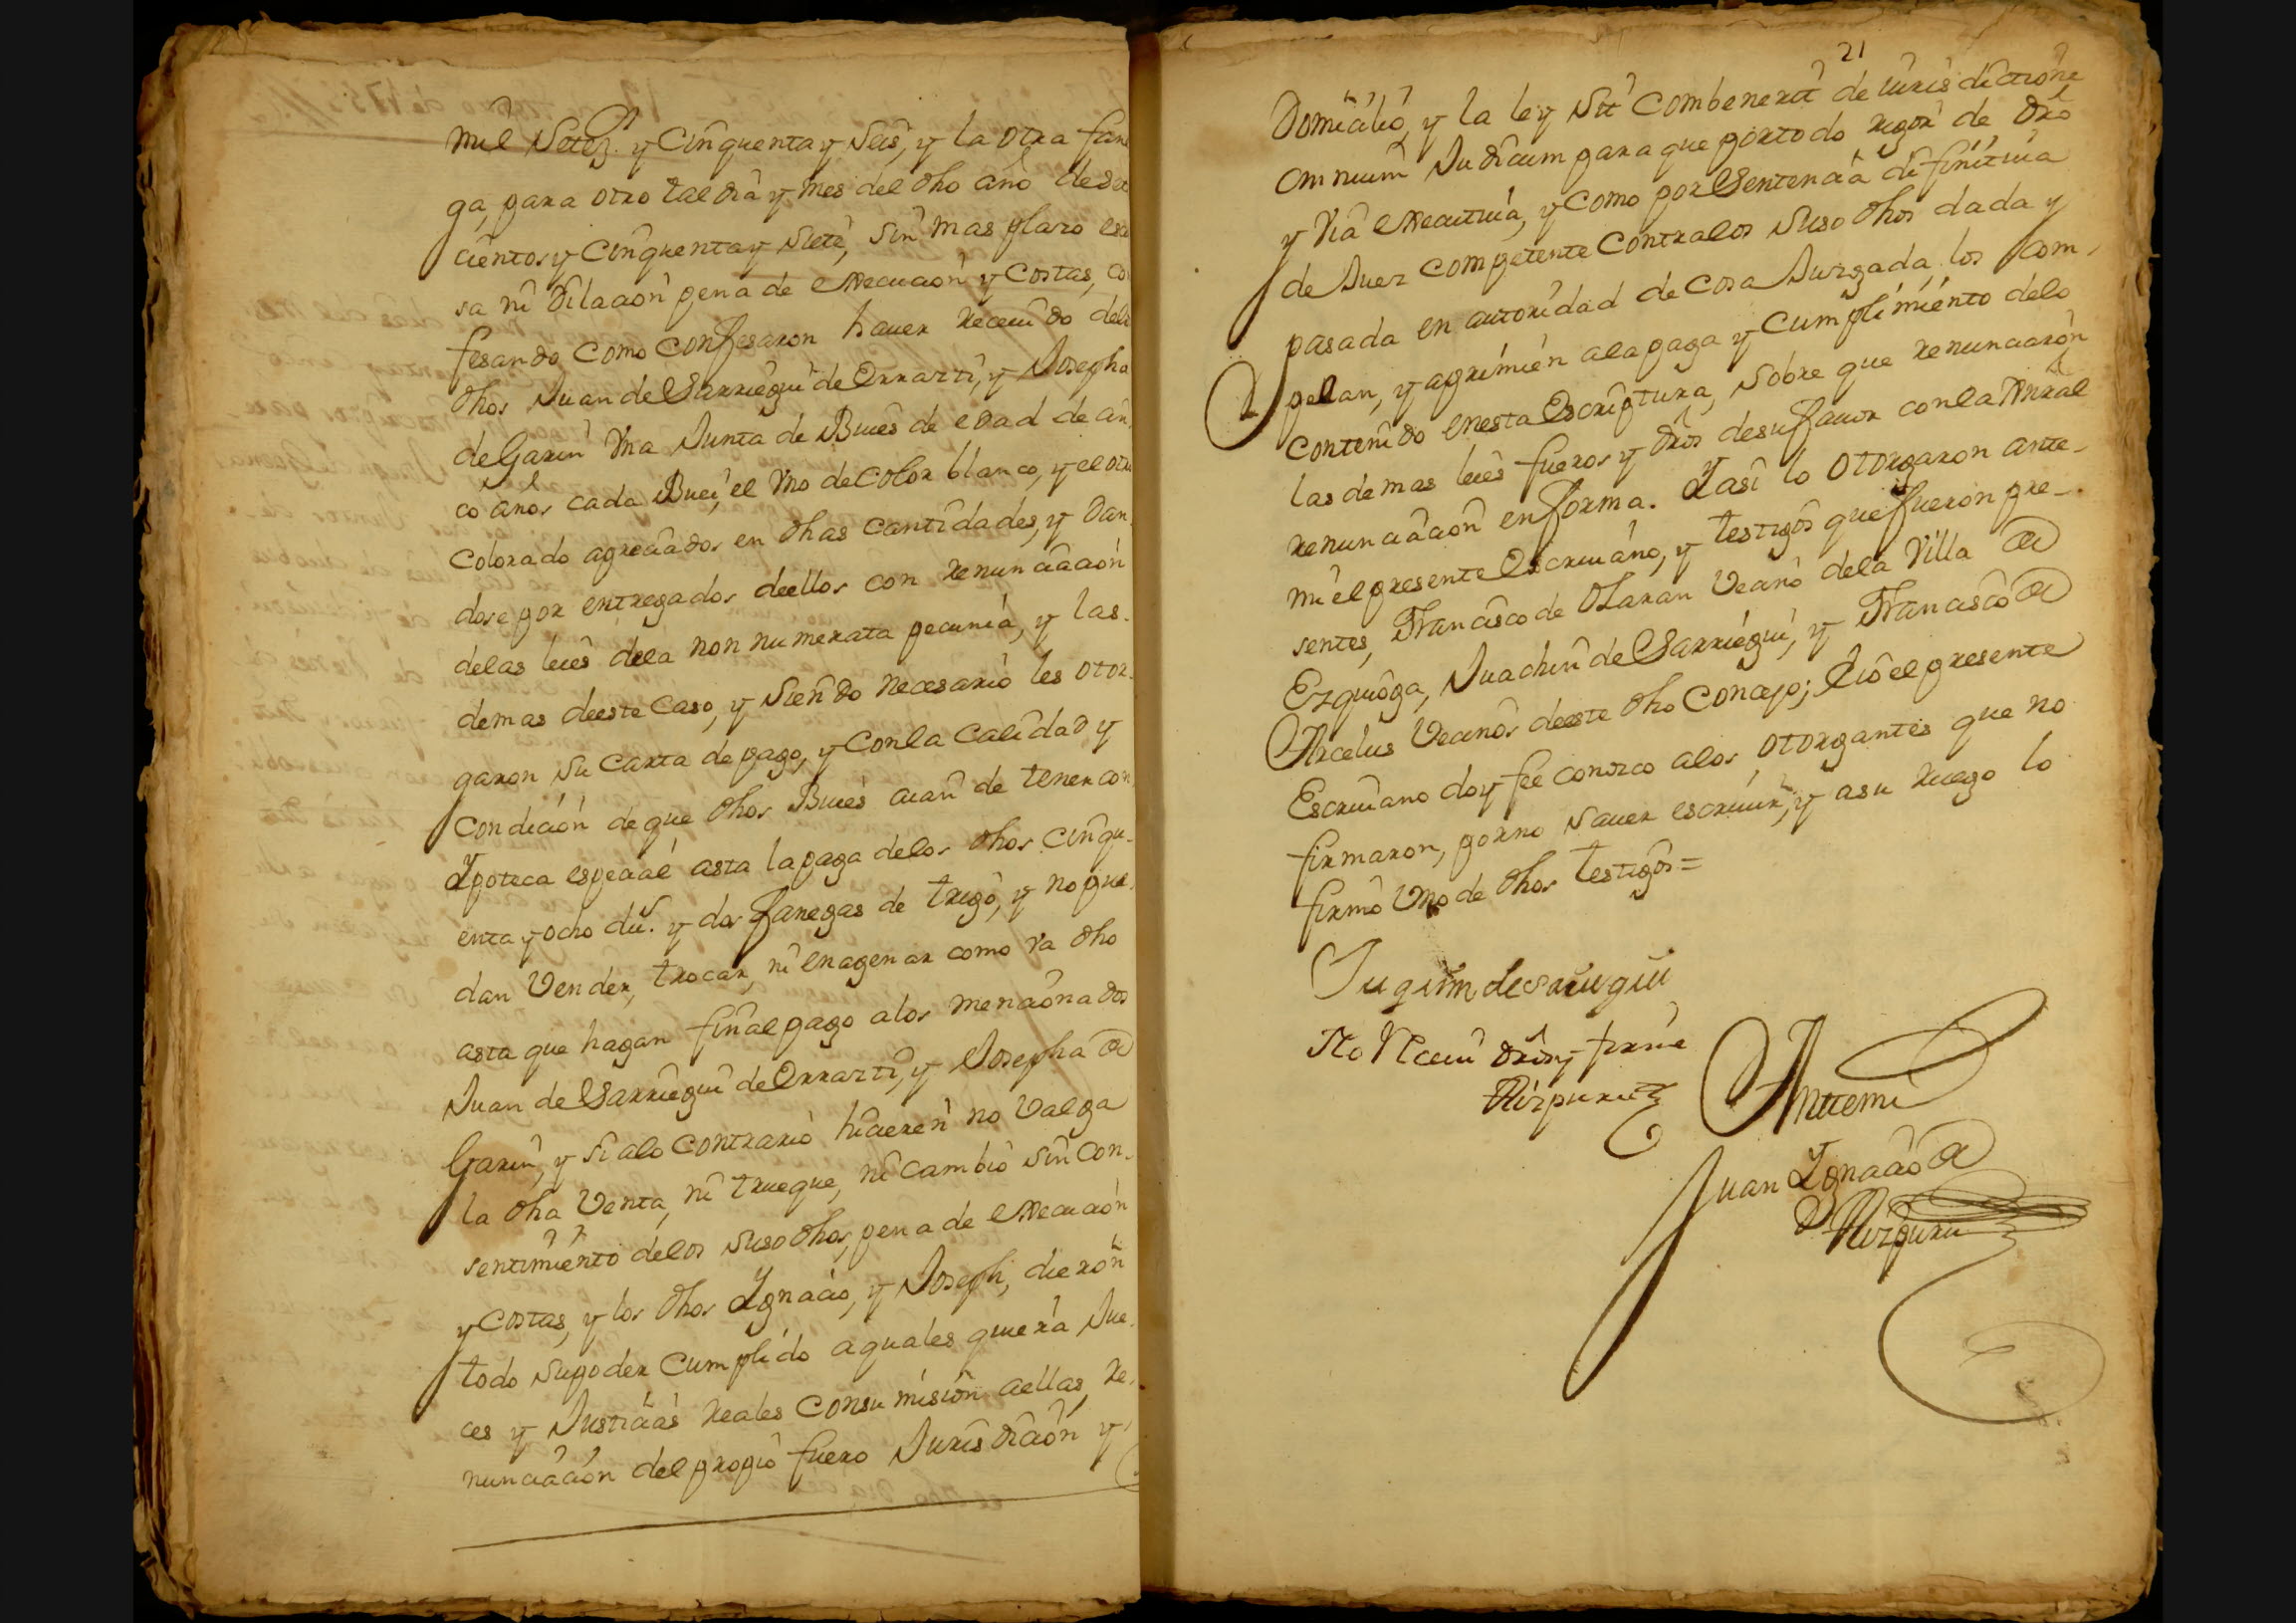 mil Setez.s y Cinquenta y Seis, y la otra fane
ga, para otro tal dia y mes del dho año de Set
cientos y Cinquenta y Siete, Sin mas plazo esc
sa ni dilacion pena de execucion y Costas, co
fesando como confesaron haver recevido dela
dhos Juan de Sarriegui de Errazti, y Josepha
de Garin Vna Junta de Bueis de edad de cin
co años cada Buei, el Vno de color blanco, y el otro
Colorado apreciados en dhas cantidades, y dan
dose por entregados deellos con renunciacion
delas leies dela non numerata pecunia, y las
demas deeste Caso, y Siendo necesario les otor
garon su Carta de pago, y Conla Calidad y
Condicion de que dhos Bueies aian de tener con
Ypoteca especial asta la paga delos dhos cinqu
enta y ocho du.s y dos fanegas de trigo, y no pue
dan Vender, trocar, ni enagenar como va dho
asta que hagan final pago alos mencionados
Juan de Sarriegui de Errazti, y Josepha de
Garin, y si alo contrario hicieren no Valga
la dha Venta, ni trueque, ni cambio sin con-
sentimiento delos suso dhos, pena de execucion
y costas, y los dhos Ygnacio, y Joseph, dieron
todo su poder cumplido a quales quiera Jue
ces y Justicias reales consu misión aellas, re
nunciacion del propio fuero Jurisdicion y
21
Domicilio, y la ley Sit Combenerit de iurisdictione
omnium Judicum para que por todo rigor de dro
y via executiva, y como por Sentencia difinitiva
de Juez competente contra los Suso dhos dada y
pasada en autoridad de cosa Juzgada los com-
pelan, y apremien ala paga y cumplimiento delo
contenido enesta Escriptura, sobre que renunciaron
las demas leies fueros y dros desu favor con la gñral
renunciacion en forma. Y asi lo otorgaron ante-
mi el presente Escrivano, y testigos que fueron pre-
sentes, Francisco de Olaran Vecino dela Villa de
Ezquioga, Juachin de Sarriegui, y Francisco de
Arcelus Vecinos deeste dho Concejo; E io el presente
Escrivano doy fee conozco alos otorgantes que no
firmaron, por no saver escrivir, y asu ruego lo
firmó Vno de dhos testigos=
Juqim de saiugiu
No Reciví dros y firmé
Aizpuru
Antemi
Juan Ygnacio de
Aizpuru